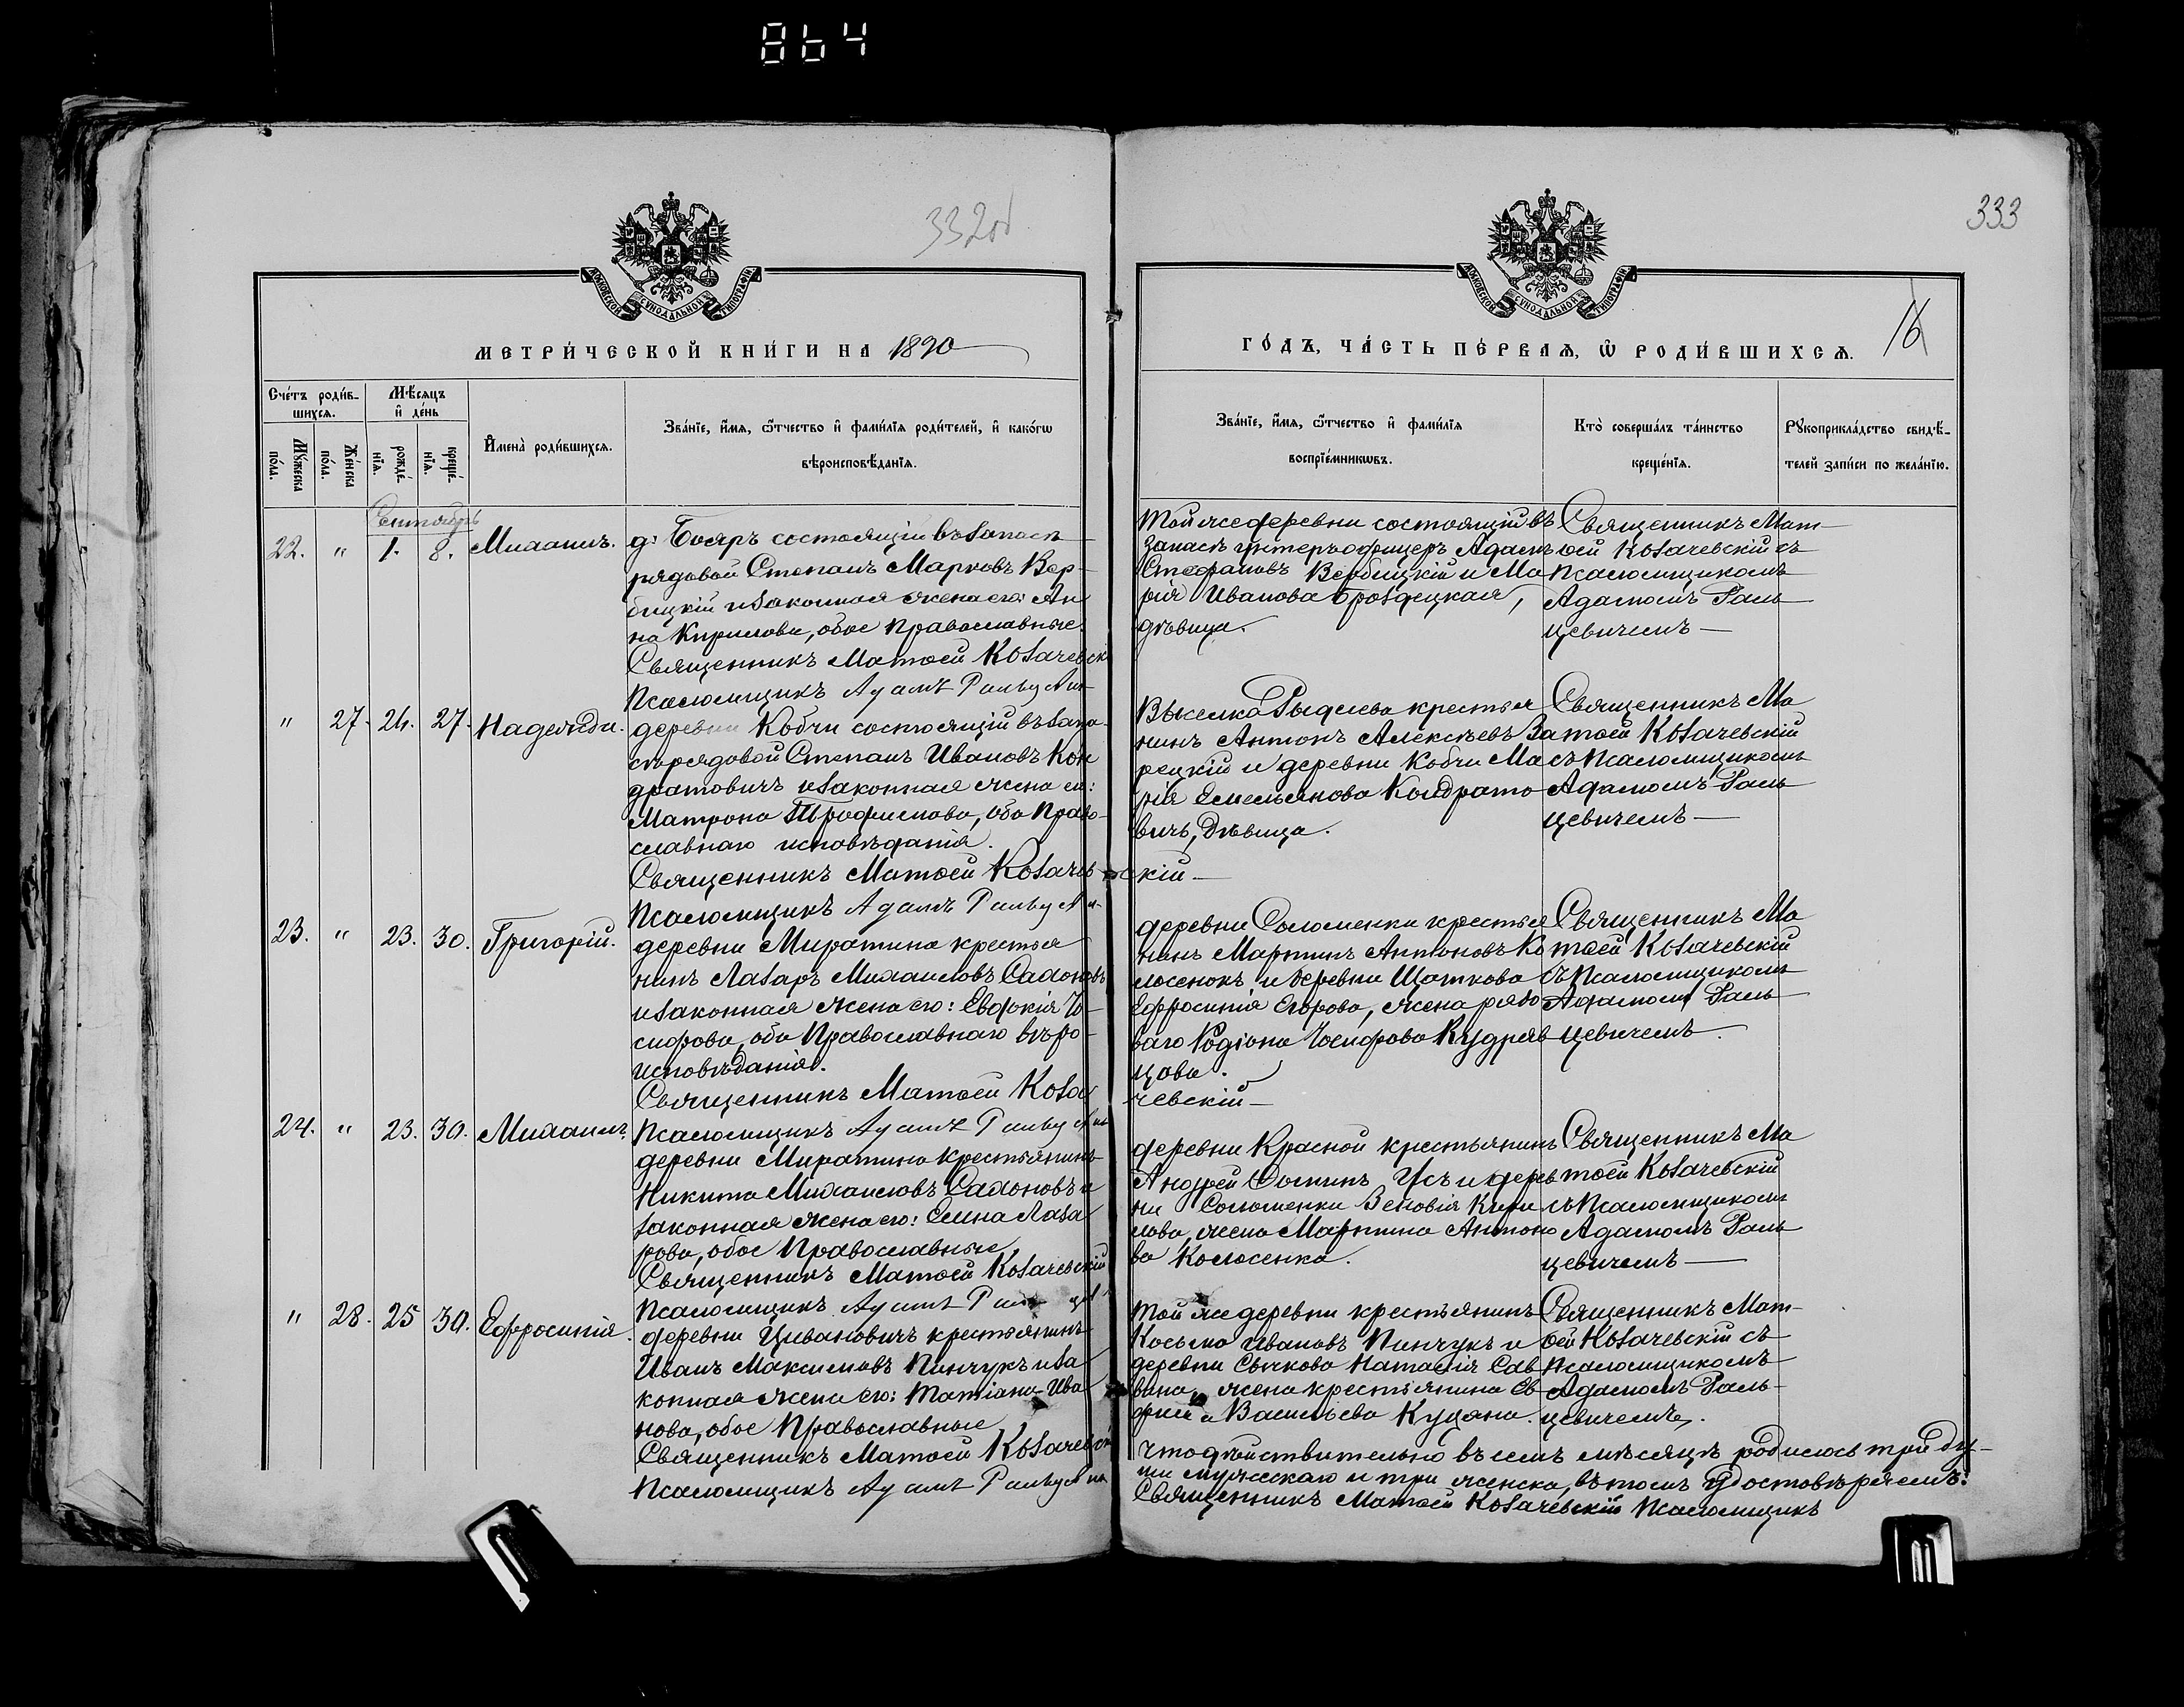 864
332об
333
16
МОСКОВСКОЙ СѴНОДАЛЬНОЙ ТИПОГРАФІИ
МОСКОВСКОЙ СѴНОДАЛЬНОЙ ТИПОГРАФІИ
МЕТРИ́ЧЕСКОЙ КНИ́ГИ НА 1890
ГО́ДЪ, ЧА́СТЬ ПЕ́РВАѦ, Ѿ РОДИ́ВШИХСѦ.
Сче́тъ роди́в-
шихсѧ.
Мꙋ́жеска
по́ла.
Же́нска
по́ла.
Мѣ́сѧцъ
и҆ де́нь
рожде́-
нїѧ.
креще́-
нїѧ.
И҆мена̀ роди́вшихсѧ.
Зва́нїе, и҆́мѧ, ѻ҆́тчество и҆ фами́лїѧ роди́телей, и҆ како́гѡ
вѣроисповѣ́данїѧ.
Зва́нїе, и҆́мѧ, ѻ҆́тчество и҆ фами́лїѧ
воспрїе́мникѡвъ.
Кто̀ соверша́лъ та́инство
креще́нїѧ.
Рꙋкоприкла́дство свидѣ́-
телей за́писи по жела́нїю.
Сентябрь
22. " 1. 8. Михаилъ.
д: Бояръ состоящій въ запасѣ
рядовой Степанъ Марковъ Вер-
бицкій и законная жена его: Ан
на Кирилова, обое православные.
Священникъ Матѳей Козачевск
Псаломщикъ Адамъ Ральц
Той же деревни состоящій въ
запасѣ унтеръ офицеръ Адамъ
Стефановъ Вербицкій и Ма
рія Иванова Броздецкая,
дѣвица.
Священникъ Мат-
ѳей Козачевскій съ
Псаломщикомъ
Адамомъ Раль
цевичемъ —
" 27. 24. 27. Надежда.
деревни Кобчи состоящій въ запа-
сѣ рядовой Степанъ Ивановъ Кон
дратовичъ и законная жена его:
Матрона Трофимова, оба Право-
славнаго исповѣданія.
Священникъ Матѳей Козачев скій —
Псаломщикъ Адамъ Ральц
Выселка Рыдлева крестья
нинъ Антонъ Алексѣевъ За
рецкій и деревни Кобчи Ма
рія Емельянова Кондрато
вичъ, дѣвица.
Священникъ Ма
тѳей Козачевскій
съ Псаломщикомъ
Адамомъ Раль
цевичемъ —
23. " 23. 30. Григорій.
деревни Миратина крестья
нинъ Лазарь Михаиловъ Сахоновъ
и законная жена его: Евдокія Іо-
сифова, оба Православнаго вѣро-
исповѣданія.
Священникъ Матѳей Коза чевскій —
Псаломщикъ Адамъ Ральц
деревни Соломенки крестья
нинъ Мартинъ Антоновъ Ко
лосенокъ и деревни Щаткова
Ефросинія Егорова, жена рядо
ваго Родіона Іосифова Кудряв
цова.
Священникъ Ма
тѳей Козачевскій
съ Псаломщикомъ
Адамомъ Раль
цевичемъ.
24. " 23. 30. Михаилъ.
деревни Миратина крестьянинъ
Никита Михаиловъ Сахоновъ и
законная жена его: Елена Лаза
рова, обое Православные
Священникъ Матѳей Козачевскій
Псаломщикъ Адамъ
деревни Красной крестьянинъ
Андрей Фоминъ Усъ и дерев
ни Соломенки Зеновія Кири
лова, жена Мартина Антоно
ва Колосенка.
Священникъ Ма
тѳей Козачевскій
съ Псаломщикомъ
Адамомъ Раль
цевичемъ —
" 28. 25 30. Ефросинія.
деревни Цивановичъ крестьянинъ
Иванъ Максимовъ Пинчукъ и за
конная жена его: Татіана Ива
нова, обое Православные
Священникъ Матѳей Козачевскій
Псаломщикъ Адамъ Ральц
Той же деревни крестьянинъ
Косьма Ивановъ Пинчукъ и
деревни Сычкова Наталія Сав
вина, жена крестьянина Ев
фима Васильева Куцана.
Священникъ Мат-
ѳей Козачевскій съ
псаломщикомъ
Адамомъ Раль-
цевичемъ.
Что дѣйствительно въ семъ мѣсяцѣ родилось три ду-
ши мужескаго и три женска, въ томъ удостовѣряемъ:
Священникъ Матѳей Козачевскій Псаломщикъ